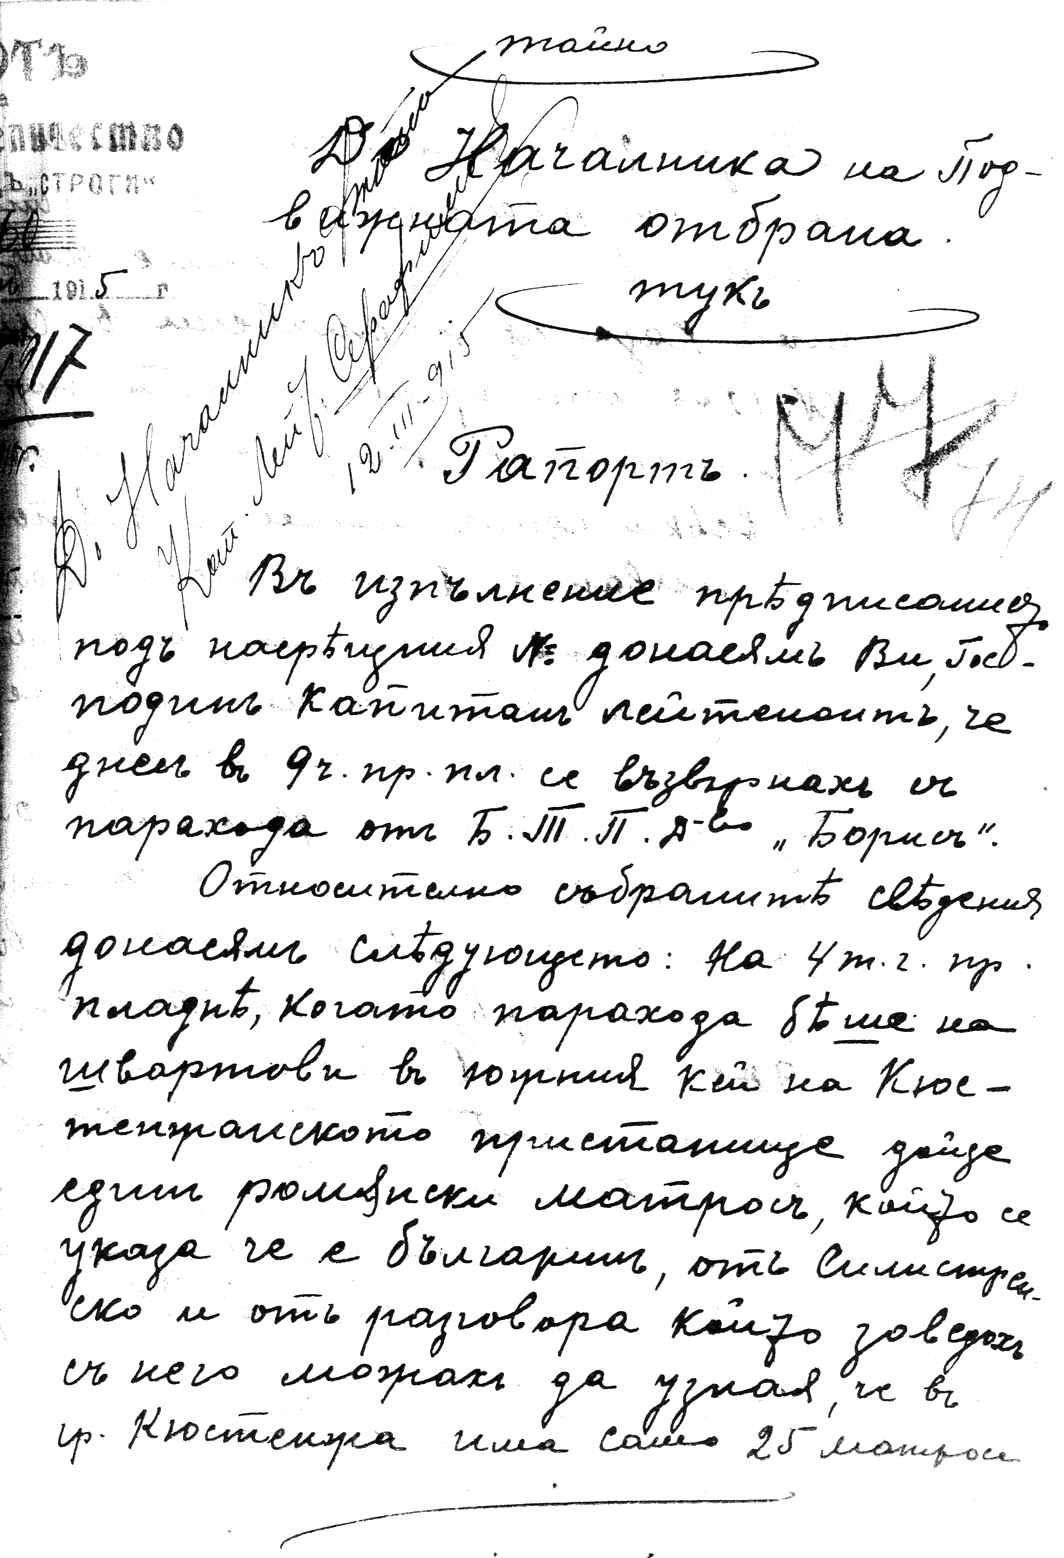 тайно
До Началника на Под-
вижната отбрана.
тукъ
ОТЪ
СТРОГИ“
1915 г.
917
До Началникъ
Кап. Лейт. Серафимовъ
12-III-915
77
74
Рапортъ.
Въ изпълнение прѣдписание
подъ насрѣщния № донасямъ Ви, Гос-
подинъ Капитанъ лейтенантъ, че
днесъ въ 9 ч. пр. пл. се възвърнахъ съ
парахода отъ Б. Т. П. Д-во „Борисъ“.
Относително събранитѣ свѣдения
донасямъ слѣдующето: На 4 т. г. пр.
пладнѣ, когато парахода бѣше на
швартови въ южния кей на Кюс-
тенжанското пристанище дойде
единъ ромѫнски матросъ, който се
указа че е българинъ, отъ Силистрен-
ско и отъ разговора който заведохъ
съ него можахъ да узная, че въ
гр. Кюстенжа има само 25 матроси